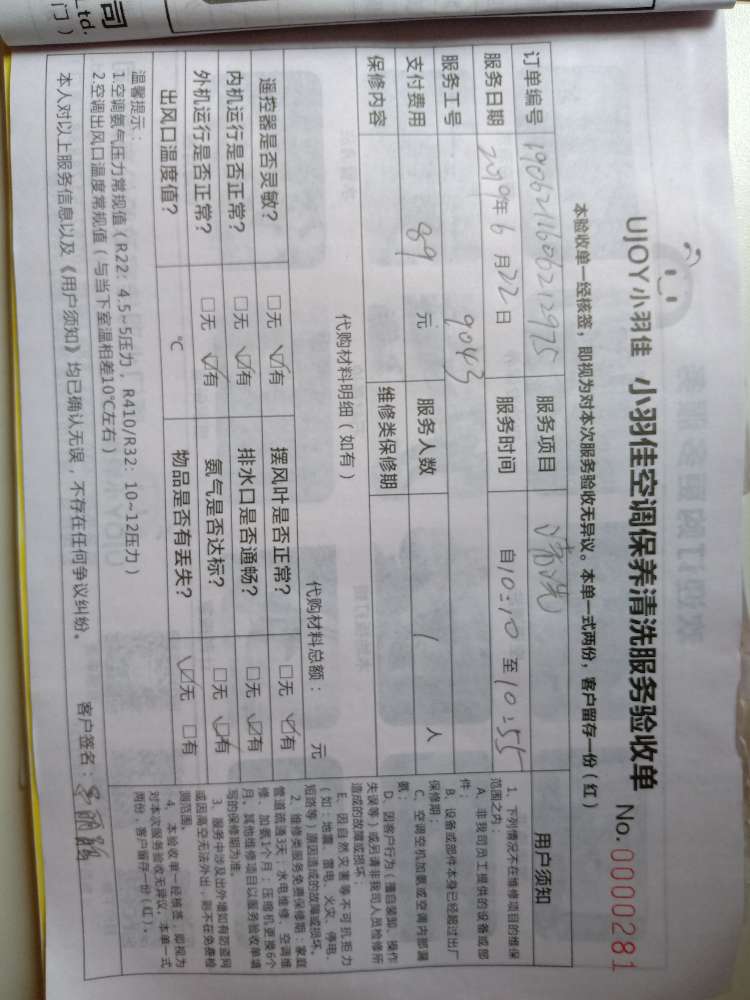 司
td.
门）
UJOY小羽佳 小羽佳空调保养清洗服务验收单 No.0000281
本验收单一经核签，即视为对本次服务验收无异议。本单一式两份，客户留存一份（红）
订单编号 19062116062129 75 服务项目 清洗
服务日期 2019年6月22日 服务时间 自10:10至10:55
服务工号 9043
支付费用 89 元 服务人数 1 人
保修内容 维修类保修期
代购材料明细（如有）
代购材料总额： 元
遥控器是否灵敏？ □无 ☑有 摆风叶是否正常？ □无 ☑有
内机运行是否正常？ □无 ☑有 排水口是否通畅？ □无 ☑有
外机运行是否正常？ □无 ☑有 氨气是否达标？ □无 ☑有
出风口温度值？ ℃ 物品是否有丢失？ ☑无 □有
温馨提示：
1.空调氨气压力常规值（R22：4.5~5压力，R410/R32：10~12压力）
2.空调出风口温度常规值（与当下室温相差10℃左右）
本人对以上服务信息以及《用户须知》均已确认无误，不存在任何争议纠纷。 客户签名：
用户须知
1、下列情况不在维修项目的维保
范围之内：
A、非我司员工提供的设备或部
件；
B、设备或部件本身已经超过出厂
保修期；
C、空调空机加氨或空调内部漏
氨；
D、因客户行为（擅自装卸、操作
失误等）或另请非我司人员检修所
造成的故障或损坏；
E、因自然灾害等不可抗拒力
（如：地震、雷电、火灾、停电、
短路等）原因造成的故障或损坏。
2、维修类服务免费保修期：家庭
管道疏通3天；水电维修、空调维
修、加氨1个月；压缩机更换6个
月。其他维修项目以服务验收单填
写的保修期为准。
3、服务中涉及出外墙如有防盗网
或因高空无法外出，则不在免费检
测范围。
4、本验收单一经核签，即视为
对本次服务验收无异议，本单一式
两份，客户留存一份（红）。